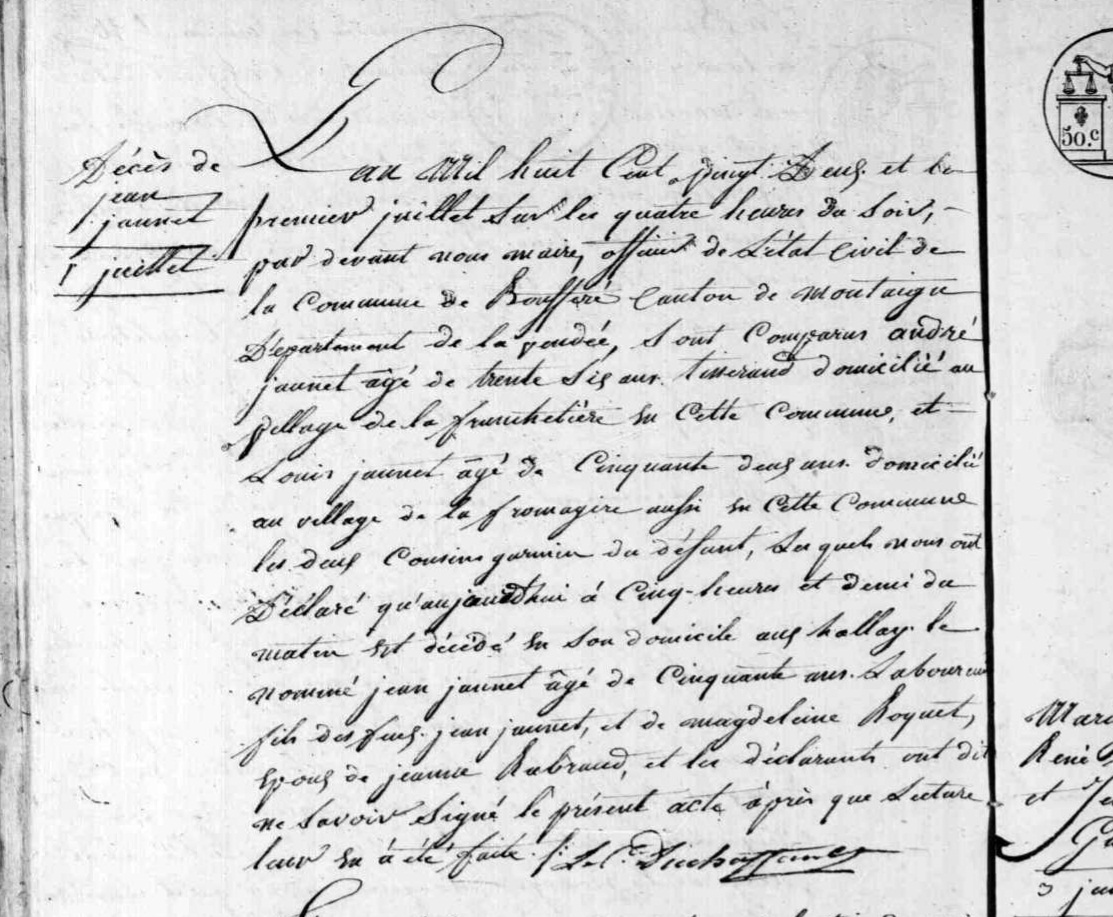 Décès de
jean
jaunet
1 juillet
L'an Mil huit Cent vingt Deux et le
premier juillet Sur les quatre heures du Soir,
par devant nous maire, officier de L'état Civil de
la Commune de Boufferé Canton de montaigu
Département de la vendée, Sont Comparus andré
jaunet âgé de trente Six ans. tisserand domicilié au
village de la franchetière en Cette Commune, et
Louis jaunet âgé de Cinquante deux ans. domicilié
au village de la fromagere aussi en Cette Commune
les deux Cousins germin du défunt, Lesquels nous ont
Déclaré qu'aujourdhui à Cinq-heures et demi du
matin est décédé en Son domicile aux hallay. le
nommé jean jaunet âgé de Cinquante ans. Laboureur
fils des feux. jean jaunet, et de magdeleine Roquet,
epoux de jeanne Rabraud, et les déclarants ont dit
ne Savoir Signé le présent acte après que Lecture
leur en à été faite
50.c
Mar
René
et
3 jui